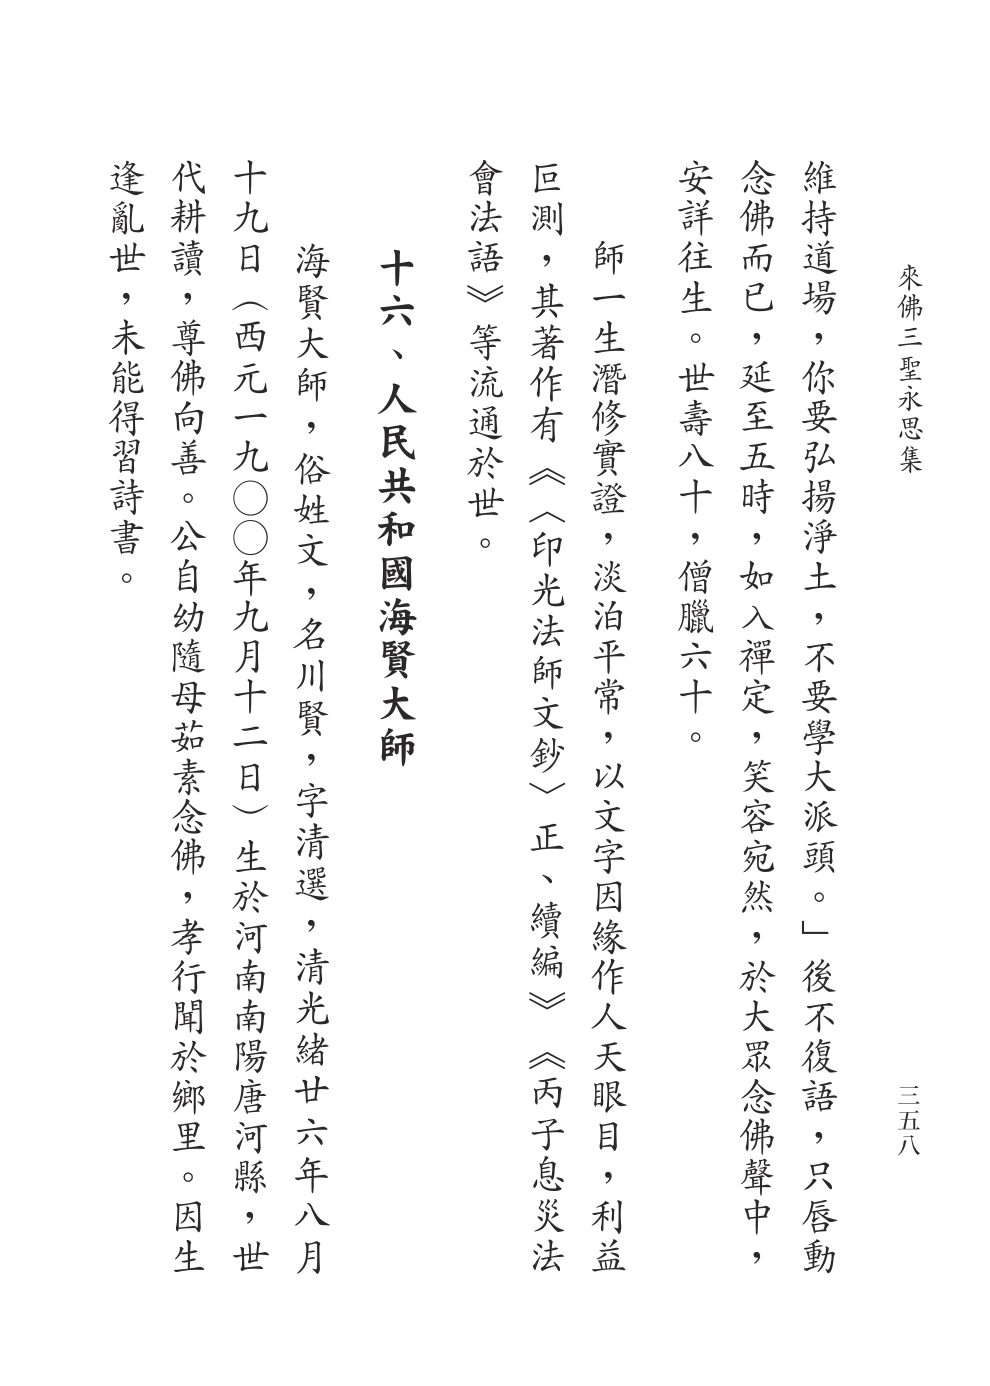 來佛三聖永思集
三五八
維持道場，你要弘揚淨土，不要學大派頭。」後不復語，只唇動
念佛而已，延至五時，如入禪定，笑容宛然，於大眾念佛聲中，
安詳往生。世壽八十，僧臘六十。
師一生潛修實證，淡泊平常，以文字因緣作人天眼目，利益
叵測，其著作有《〈印光法師文鈔〉正、續編》《丙子息災法
會法語》等流通於世。
十六、人民共和國海賢大師
海賢大師，俗姓文，名川賢，字清選，清光緒廿六年八月
十九日（西元一九〇〇年九月十二日）生於河南南陽唐河縣，世
代耕讀，尊佛向善。公自幼隨母茹素念佛，孝行聞於鄉里。因生
逢亂世，未能得習詩書。